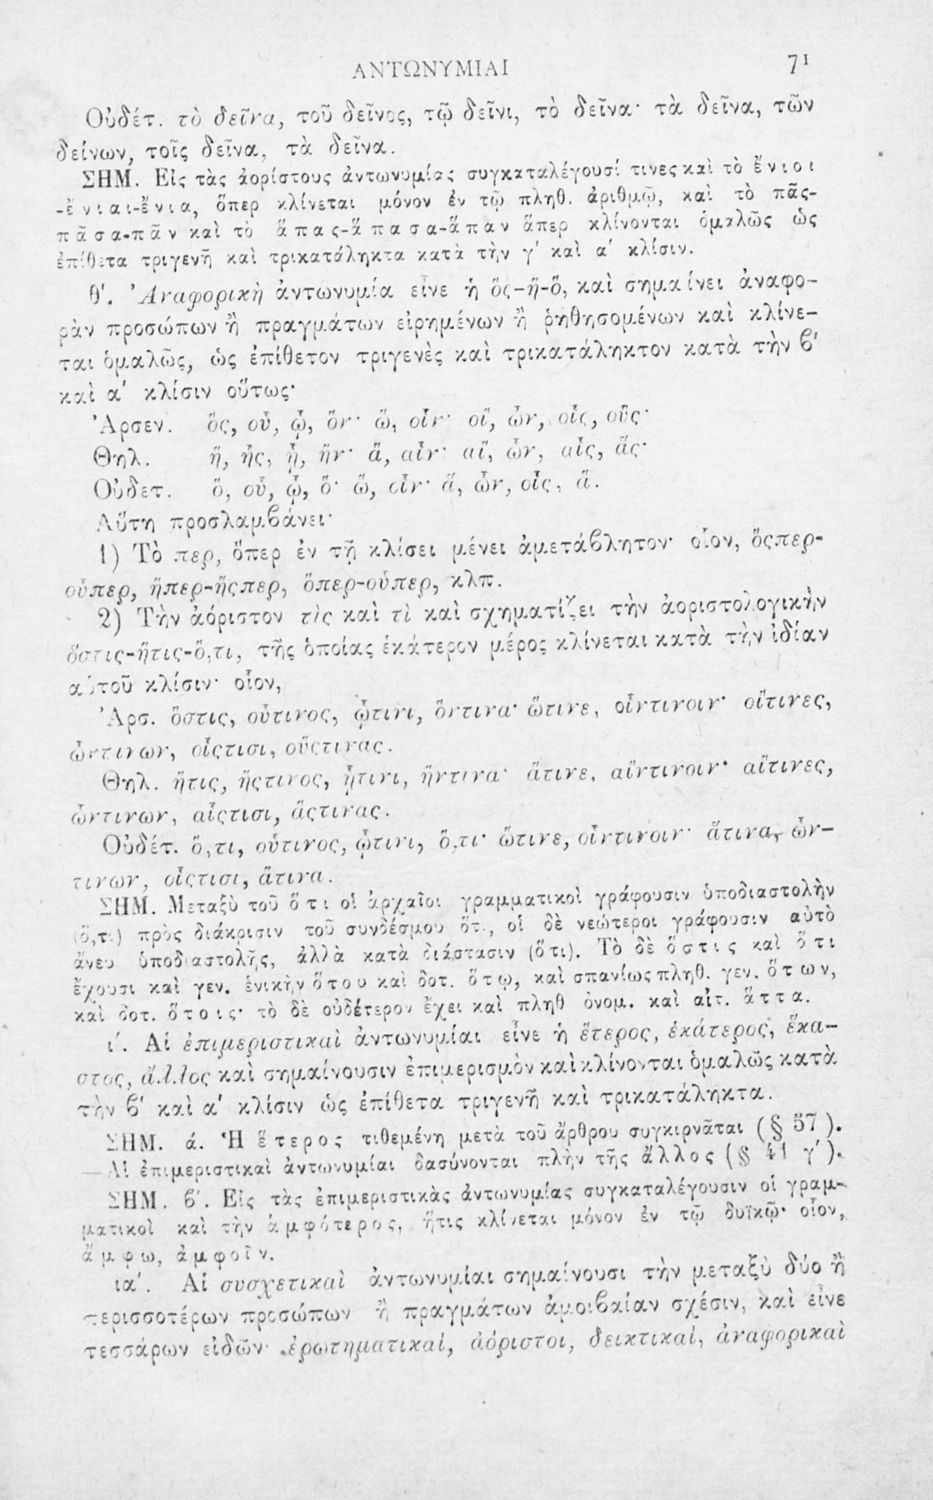 ΑΝΤΩΝΥΜΙΑΙ 71
Οὐδέτ. τὸ δεῖνα, τοῦ δεῖνος, τῷ δεῖνι, τὸ δεῖνα· τὰ δεῖνα, τῶν
δείνων, τοῖς δεῖνα, τὰ δεῖνα.
ΣΗΜ. Εἰς τὰς ἀορίστους ἀντωνυμίας συγκαταλέγουσί τινες καὶ τὸ ἔνιοι
-ἔνιαι-ἔνια, ὅπερ κλίνεται μόνον ἐν τῷ πληθ. ἀριθμῷ, καὶ τὸ πᾶς-
πᾶσα-πᾶν καὶ τὸ ἅπας-ἅπασα-ἅπαν ἅπερ κλίνονται ὁμαλῶς ὡς
ἐπίθετα τριγενῆ καὶ τρικατάληκτα κατὰ τὴν γ' καὶ α' κλίσιν.
θ'. Ἀναφορικὴ ἀντωνυμία εἶνε ἡ ὅς-ἥ-ὅ, καὶ σημαίνει ἀναφο-
ρὰν προσώπων ἢ πραγμάτων εἰρημένων ἢ ῥηθησομένων καὶ κλίνε-
ται ὁμαλῶς, ὡς ἐπίθετον τριγενὲς καὶ τρικατάληκτον κατὰ τὴν β'
καὶ α' κλίσιν οὕτως·
Ἀρσεν. ὅς, οὗ, ᾧ, ὅν· ὥ, οἷν· οἵ, ὧν, οἷς, οὕς·
Θηλ. ἥ, ἧς, ᾗ, ἥν· ἅ, αἷν· αἵ, ὧν, αἷς, ἅς·
Οὐδετ. ὅ, οὗ, ᾧ, ὅ· ὥ, οἷν· ἅ, ὧν, οἷς, ἅ.
Αὕτη προσλαμβάνει·
1) Τὸ περ, ὅπερ ἐν τῇ κλίσει μένει ἀμετάβλητον· οἷον, ὅςπερ-
οὗπερ, ἥπερ-ἧςπερ, ὅπερ-οὗπερ, κλπ.
2) Τὴν ἀόριστον τὶς καὶ τὶ καὶ σχηματίζει τὴν ἀοριστολογικὴν
ὅστις-ἥτις-ὅ,τι, τῆς ὁποίας ἑκάτερον μέρος κλίνεται κατὰ τὴν ἰδίαν
αὑτοῦ κλίσιν· οἷον,
Ἀρσ. ὅστις, οὗτινος, ᾧτινι, ὅντινα· ὥτινε, οἷντινοιν· οἵτινες,
ὧντινων, οἷςτισι, οὕςτινας.
Θηλ. ἥτις, ἧςτινος, ᾗτινι, ἥντινα· ἅτινε, αἷντινοιν· αἵτινες,
ὧντινων, αἷςτισι, ἅςτινας.
Οὐδέτ. ὅ,τι, οὗτινος, ᾧτινι, ὅ,τι· ὥτινε, οἷντινοιν· ἅτινα, ὧν-
τινων, οἷςτισι, ἅτινα.
ΣΗΜ. Μεταξὺ τοῦ ὅτι οἱ ἀρχαῖοι γραμματικοὶ γράφουσιν ὑποδιαστολὴν
(ὅ,τι) πρὸς διάκρισιν τοῦ συνδέσμου ὅτι, οἱ δὲ νεώτεροι γράφουσιν αὐτὸ
ἄνευ ὑποδιαστολῆς, ἀλλὰ κατὰ διάστασιν (ὅτι). Τὸ δὲ ὅστις καὶ ὅτι
ἔχουσι καὶ γεν. ἑνικὴν ὅτου καὶ δοτ. ὅτῳ, καὶ σπανίως πληθ. γεν. ὅτων,
καὶ δοτ. ὅτοις· τὸ δὲ οὐδέτερον ἔχει καὶ πληθ ὀνομ. καὶ αἰτ. ἅττα.
ι'. Αἱ ἐπιμεριστικαὶ ἀντωνυμίαι εἶνε ἡ ἕτερος, ἑκάτερος, ἕκα-
στος, ἄλλος καὶ σημαίνουσιν ἐπιμερισμὸν καὶ κλίνονται ὁμαλῶς κατὰ
τὴν β' καὶ α' κλίσιν ὡς ἐπίθετα τριγενῆ καὶ τρικατάληκτα.
ΣΗΜ. ά. Ἡ ἕτερος τιθεμένη μετὰ τοῦ ἄρθρου συγκιρνᾶται (§ 57).
— Αἱ ἐπιμεριστικαὶ ἀντωνυμίαι δασύνονται πλὴν τῆς ἄλλος (§ 41 γ').
ΣΗΜ. β'. Εἰς τὰς ἐπιμεριστικὰς ἀντωνυμίας συγκαταλέγουσιν οἱ γραμ-
ματικοὶ καὶ τὴν ἀμφότερος, ἥτις κλίνεται μόνον ἐν τῷ δυϊκῷ· οἷον,
ἄμφω, ἀμφοῖν.
ια'. Αἱ συσχετικαὶ ἀντωνυμίαι σημαίνουσι τὴν μεταξὺ δύο ἢ
περισσοτέρων προσώπων ἢ πραγμάτων ἀμοιβαίαν σχέσιν, καὶ εἶνε
τεσσάρων εἰδῶν· ἐρωτηματικαί, ἀόριστοι, δεικτικαί, ἀναφορικαὶ